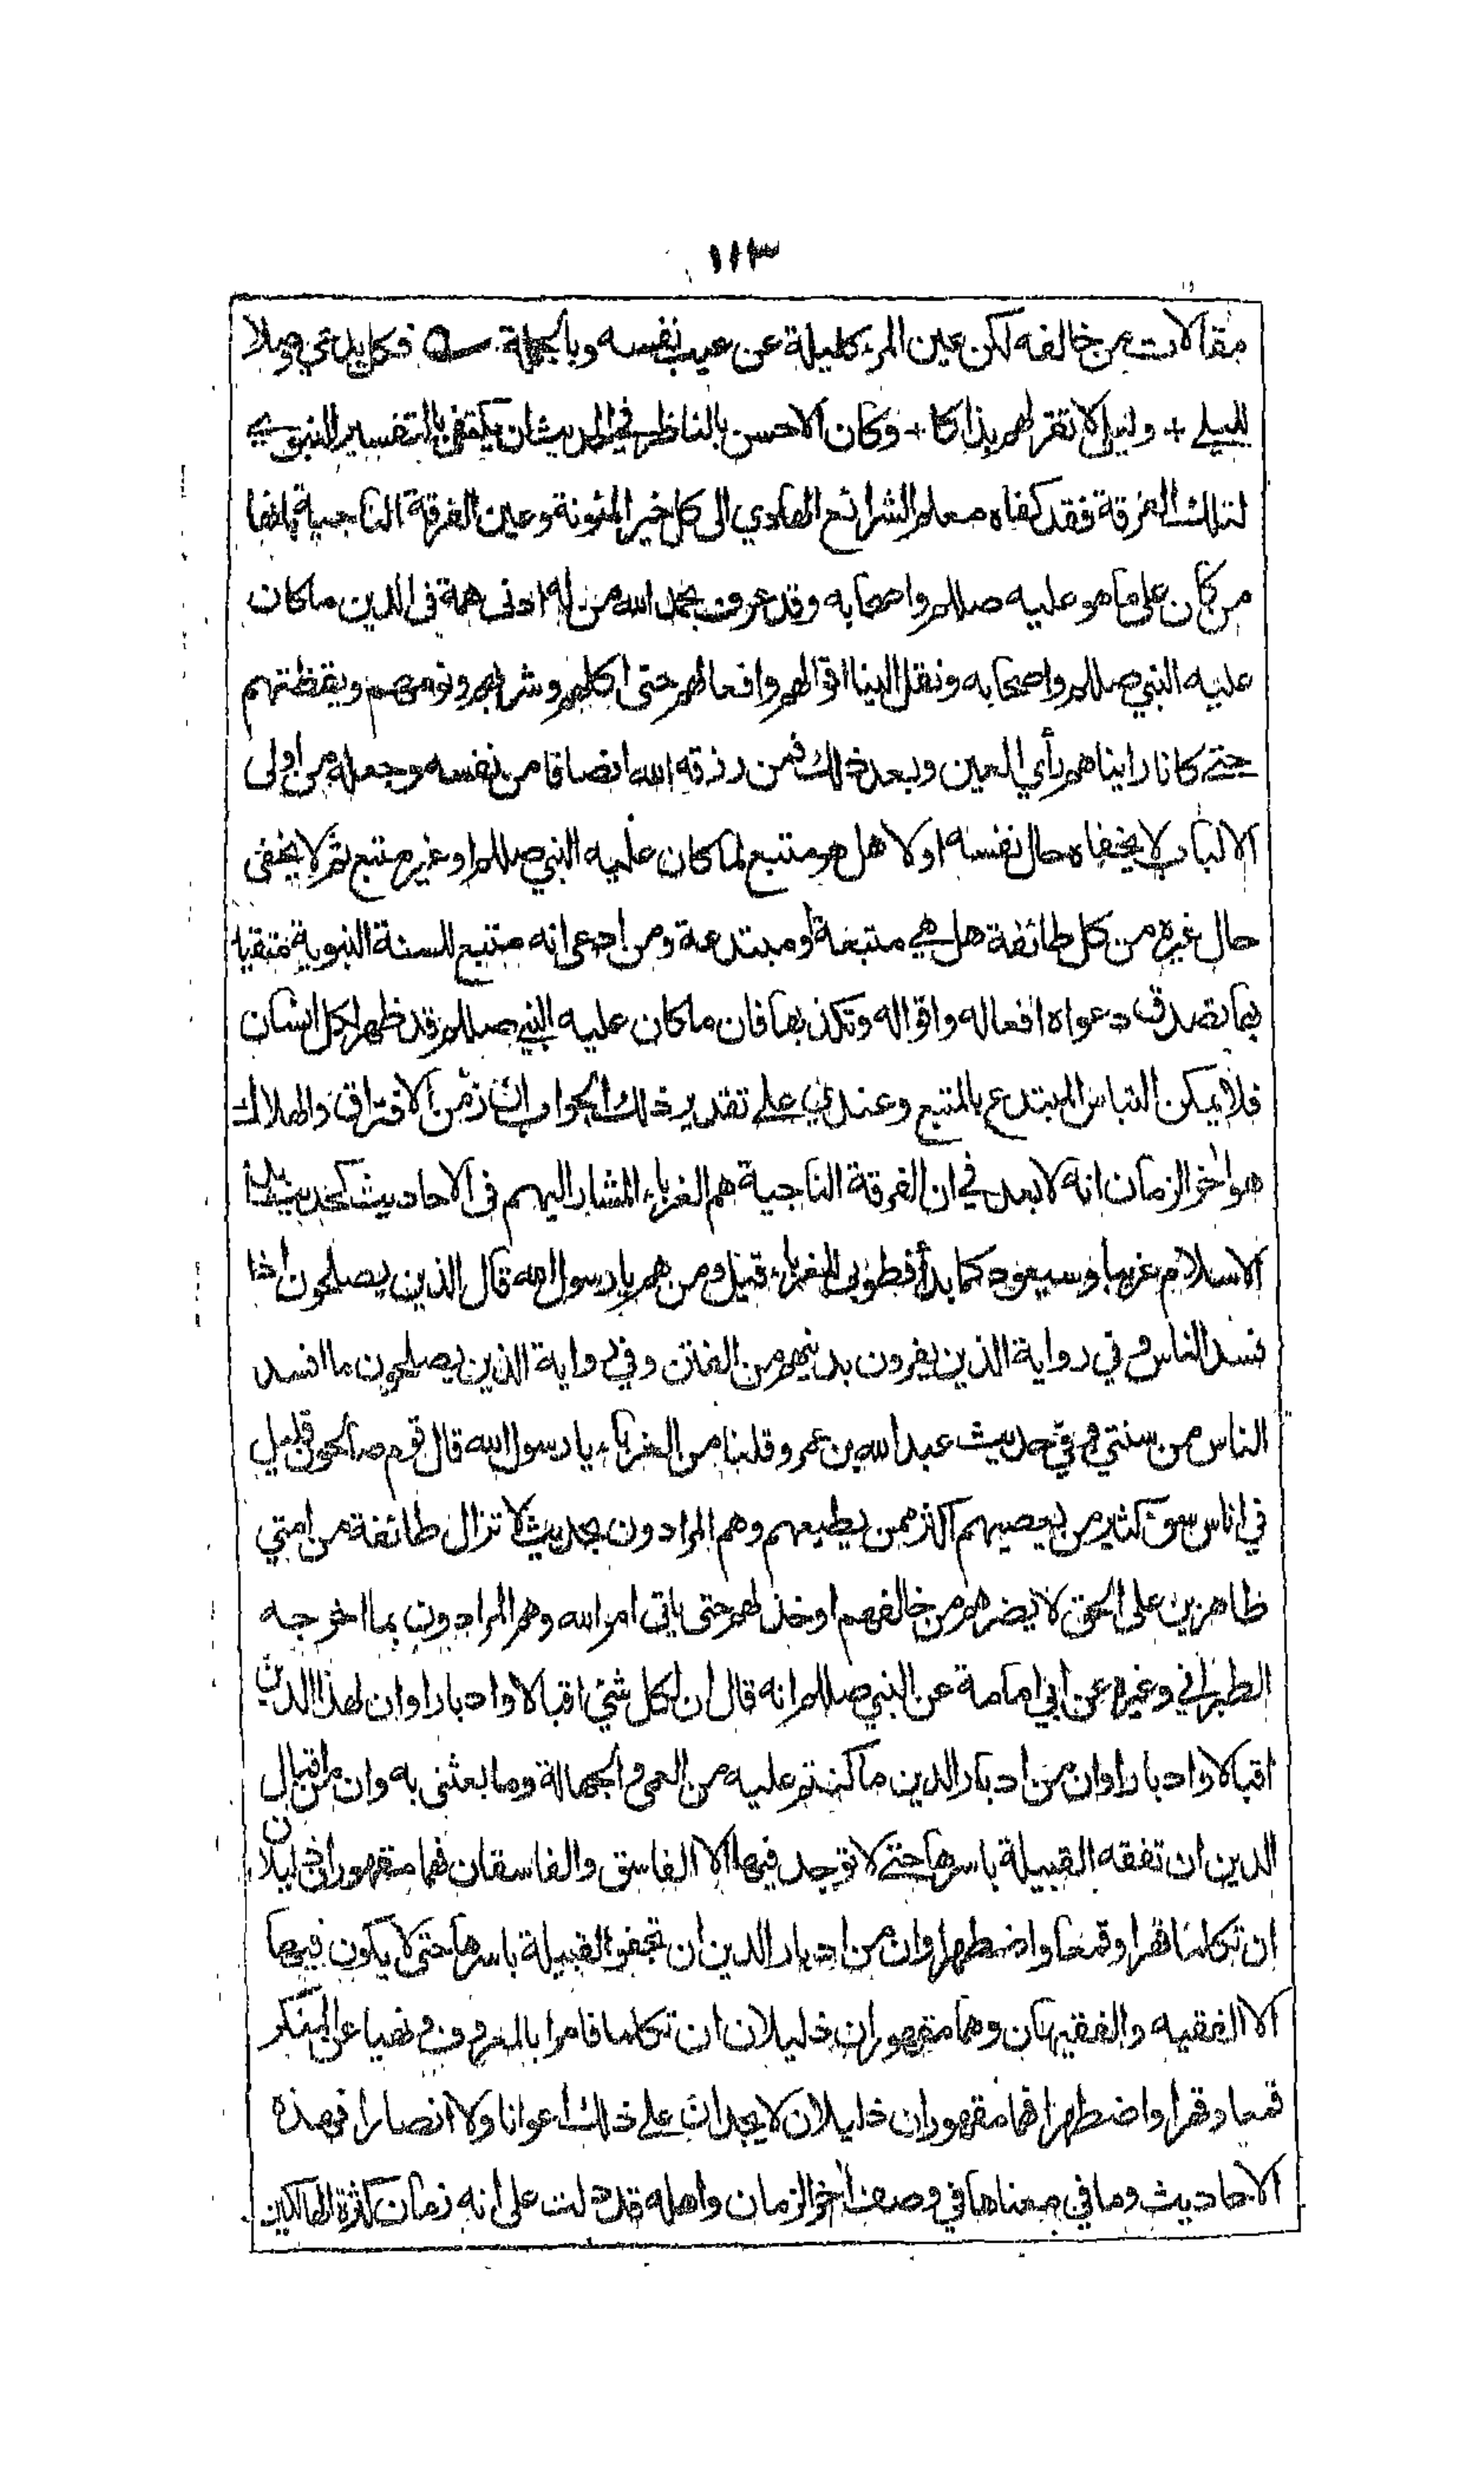 ١١٣
مقالات من خالفه لكن عين المرء كليلة عن عيب نفسه وبالجملة فكل يدعي وصلا
لليلى + وليلى لا تقر لهم بذاكا + وكان الاحسن بالناظر في الحديث ان يكتفي بالتفسير النبوي
لتلك الفرقة فقد كفاه معلم الشرائع الهادي الى كل خير المئونة وعين الفرقة الناجية بانها
من كان على ما هو عليه صللم واصحابه وقد عرف بحمد الله من له ادنى همة فى الدين ما كان
عليه النبي صللم واصحابه ونقل الينا اقوالهم وافعالهم حتى اكلهم وشربهم ونومهم ويقظتهم
حتے كانا راينا هم رأي العين وبعد ذلك فمن رزقه الله انصافا من نفسه وجعله من اولى
الالباب لا يخفاه حال نفسه اولا هل هو متبع لما كان عليه النبي صللم او غير متبع ثم لا يخفى
حال غيره من كل طائفة هل هي متبعة او مبتدعة ومن ادعى انه متبع للسنة النبوية متقيا
بها تصدق دعواه افعاله واقواله وتكذبها فان ما كان عليه النبي صللم قد ظهر لكل انسان
فلا يمكن التباس المبتدع بالمتبع وعندي على تقدير ذلك الجواب ان زمن الافتراق والهلاك
هو اخر الزمان انه لا بعد في ان الفرقة الناجية هم الغرباء المشار اليهم فى الاحاديث كحديث بدأ
الاسلام غريبا وسيعود كما بدأ فطوبى للغرباء قيل ومن هم يا رسول الله قال الذين يصلحون اذا
فسد الناس و في رواية الذين يفرون بدينهم من الفتن وفي رواية الذين يصلحون ما افسد
الناس من سنتي و في حديث عبد الله بن عمرو قلنا من الغرباء يا رسول الله قال قوم صالحون قليل
في اناس سوء كثير من يعصيهم اكثر ممن يطيعهم وهم المرادون بحديث لا تزال طائفة من امتي
ظاهرين على الحق لا يضرهم من خالفهم او خذلهم حتى ياتى امر الله وهم المرادون بما اخرجه
الطبراني وغيره عن ابي امامة عن النبي صللم انه قال ان لكل شئ اقبالا وادبارا وان لهذا الدين
اقبالا وادبارا وان من ادبار الدين ما كنتم عليه من العمى والجهالة وما بعثنى به وان من اقبال
الدين ان تفقه القبيلة باسرها حتے لا توجد فيها الا الفاسق والفاسقان فهما مقهوران ذليلان
ان تكلما قهرا وقمعا واضطهرا وان من ادبار الدين ان تجفو القبيلة باسرها حتى لا يكون فيها
الا الفقيه والفقيهان وهما مقهوران ذليلان ان تكلما فامرا بالمعروف ونهيا عن المنكر
قمعا وقهرا واضطهرا فهما مقهوران ذليلان لا يجدان على ذلك اعوانا ولا انصارا فهذه
الاحاديث وما في معناها في وصف اخر الزمان واهله قد دلت على انه زمان كثرة الهالكين